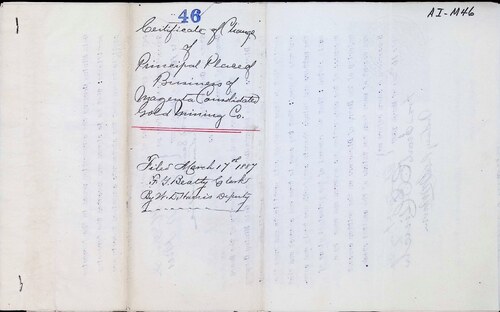 46
AI-M46
Certificate of Change
of
Principal Place of
Business of
Magenta Consolidated
Gold Mining Co.
Filed March 17th 1887
F. G. Beatty Clerk
By W. D. Harris Deputy